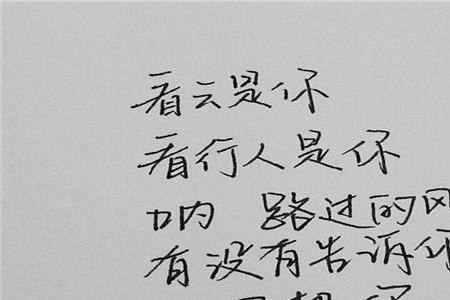 看云是你
看行人是你
呐 路过的风
有没有告诉你